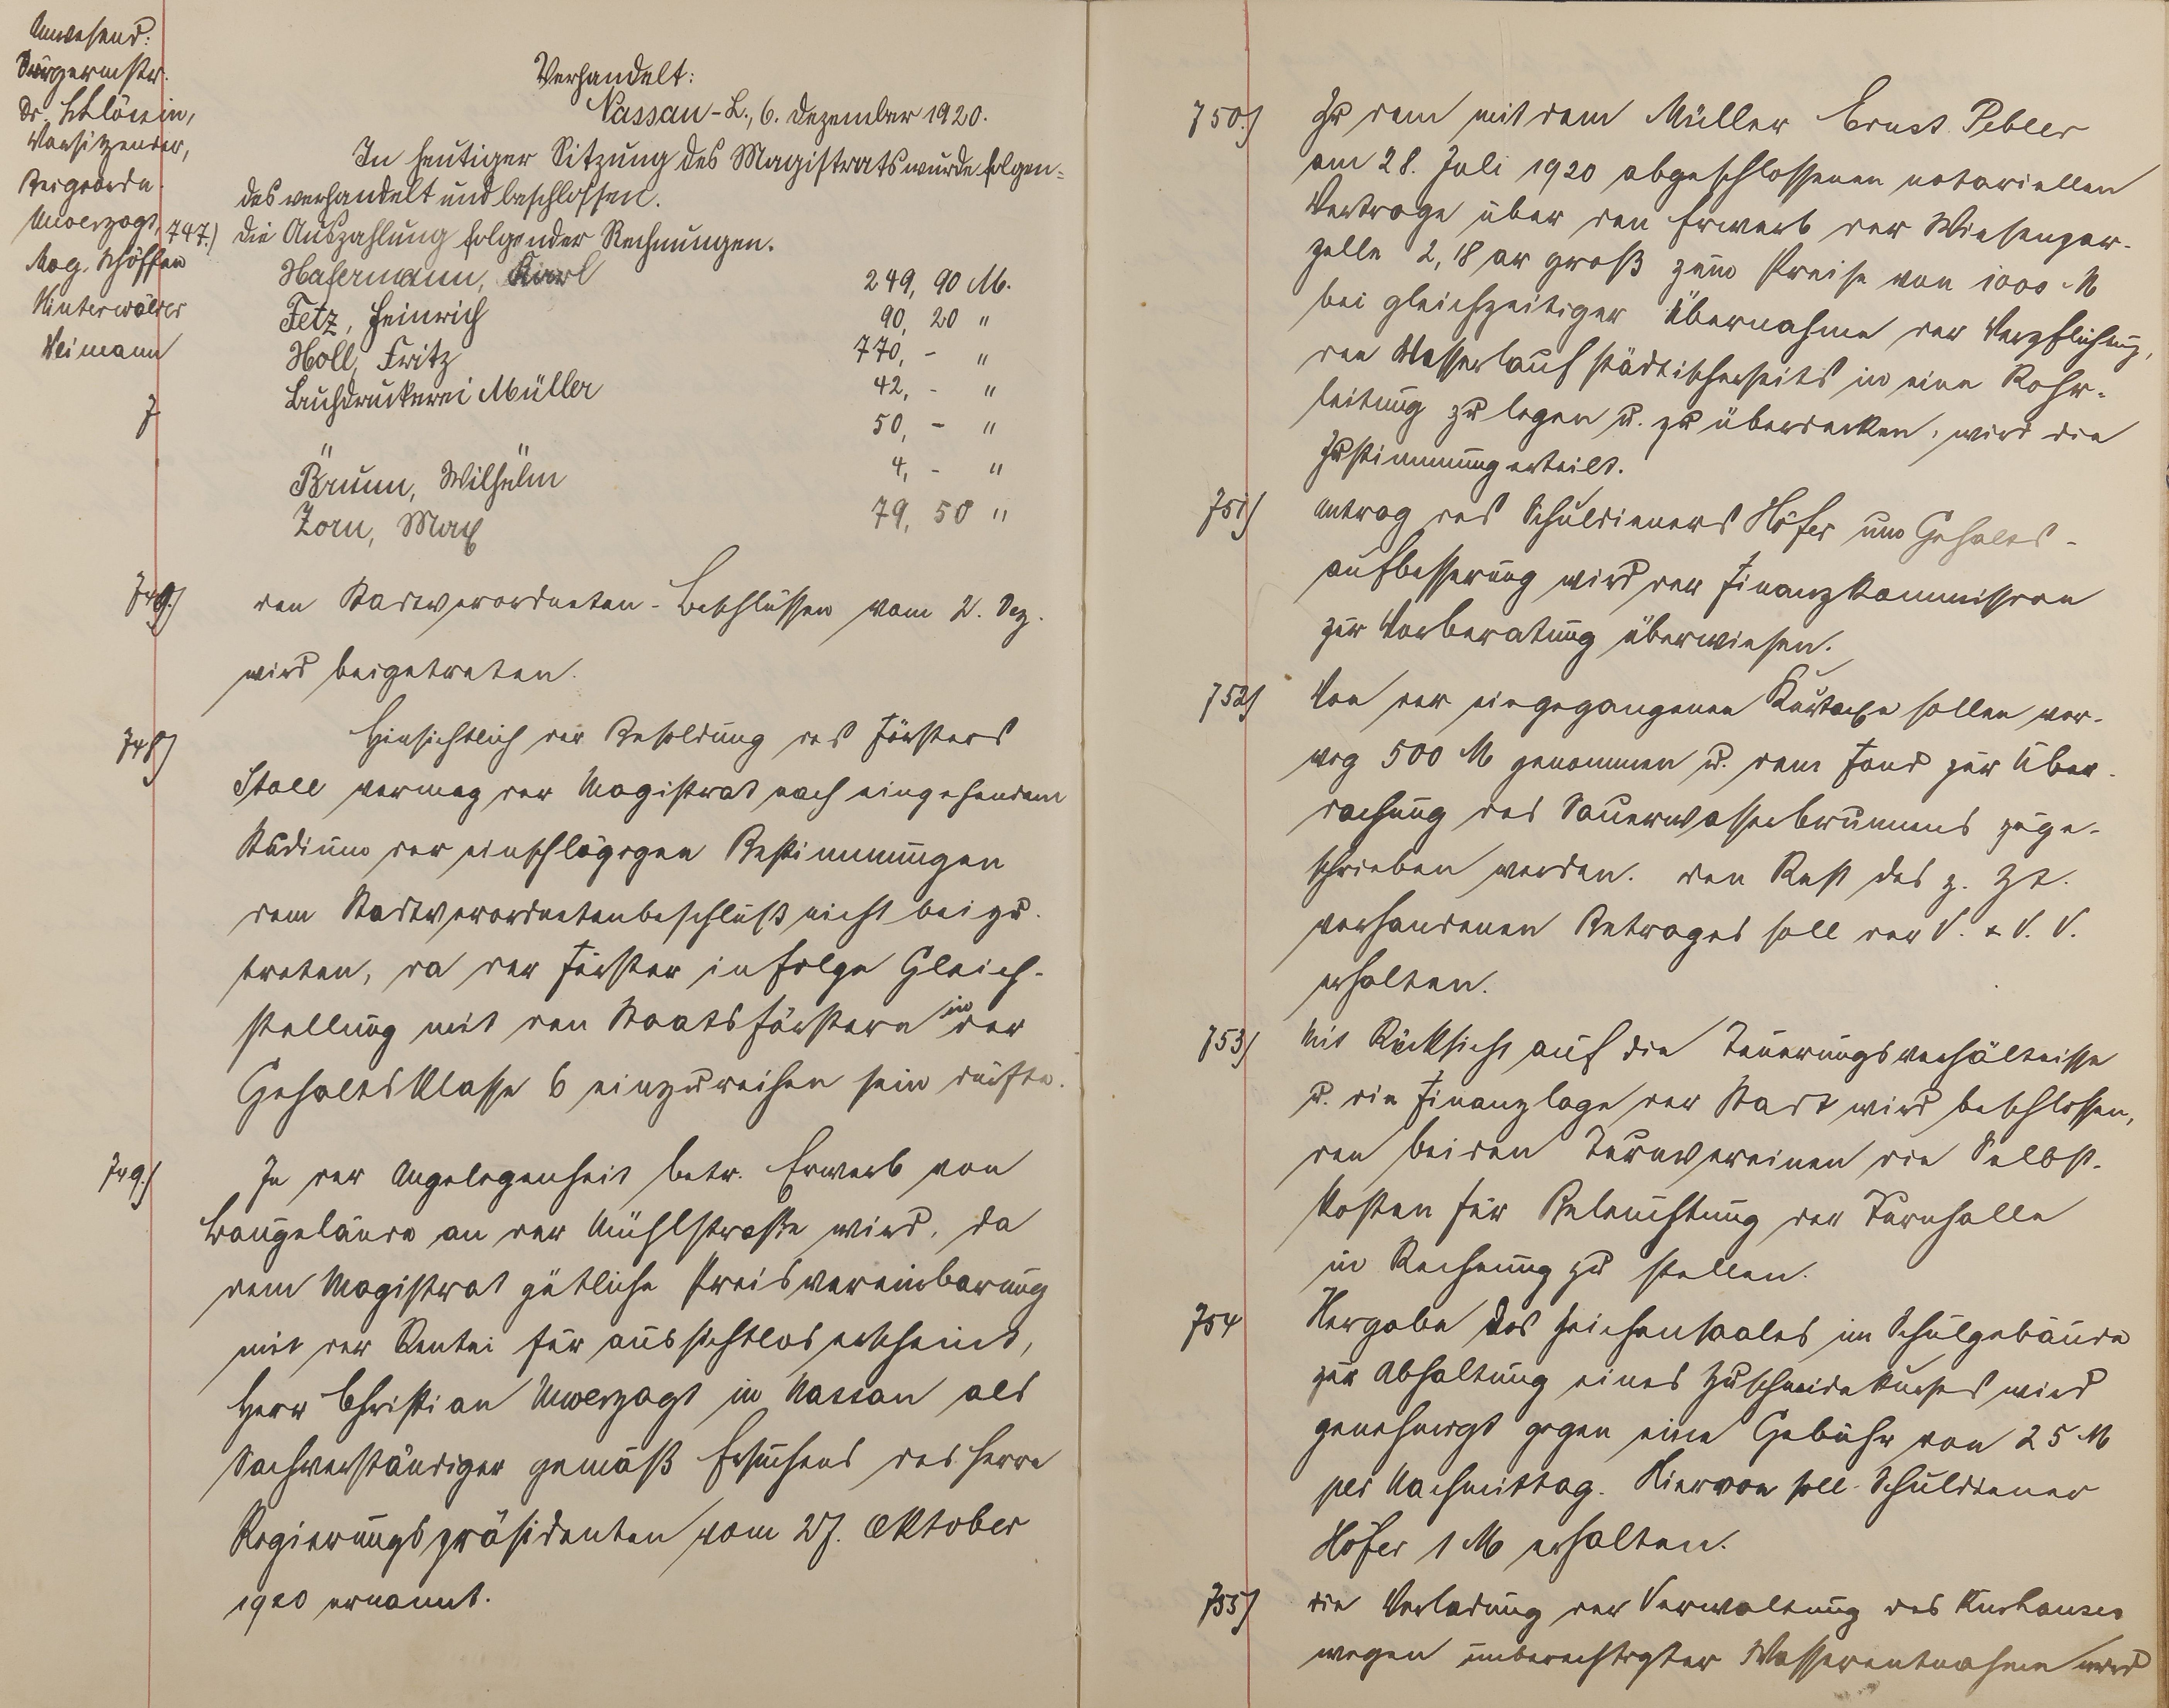 Anwesend:
Bürgermstr.
Dr. Schlössin,
Vorsitzender,
Beigeordn.
Unverzagt,
Mag. Schöffen
Hinterwälder
Heimann
Verhandelt:
Nassau-L., 6. Dezember 1920.
In heutiger Sitzung des Magistrats wurde folgen-
des verhandelt und beschlossen.
747.) Die Auszahlung folgender Rechnungen.
Hafermann, Karl 249, 90 M.
Fetz, Heinrich 90, 20 "
Holl, Fritz 770, - "
Buchdruckerei Müller 42, - "
" 50, - "
Brunn, Wilhelm 4, - "
Zorn, Max 79, 50 "
749.) den Stadtverordneten-Beschlüssen vom 2. Dez.
wird beigetreten.
748) Hinsichtlich der Besoldung des Försters
Stoll vermag der Magistrat nach eingehendem
Studium der einschlägigen Bestimmungen
dem Stadtverordnetenbeschluß nicht beizu-
treten, da der Förster infolge Gleich-
stellung mit den Staatsförstern in der
Gehaltsklasse 6 einzureihen sein dürfte.
749.) In der Angelegenheit betr. Erwerb von
Baugelände an der Mühlstraße wird, da
dem Magistrat gütliche Preisvereinbarung
mit der Rentei für aussichtlos erscheint,
Herr Christian Unverzagt in Nassau als
Sachverständiger gemäß Ersuchens des Herrn
Regierungspräsidenten vom 27. Oktober
1920 ernannt.
750.) Zu dem mit dem Müller Ernst Pebler
am 28. Juli 1920 abgeschlossenen notariellen
Vertrage über den Erwerb der Wiesenpar-
zelle 2,18 ar groß zum Preise von 1000 M
bei gleichzeitiger Übernahme der Verpflichtung,
den Wasserlauf städtischerseits in eine Rohr-
leitung zu legen u. zu überdecken, wird die
Zustimmung erteilt.
751) Antrag des Schuldieners Höfer um Gehalts-
aufbesserung wird der Finanzkommission
zur Vorberatung überwiesen.
752) Von der eingegangenen Kurtaxe sollen vor-
weg 500 M genommen u. dem Fond zur Über-
dachung des Sauerwasserbrunnens zuge-
schrieben werden. Den Rest des z. Zt.
vorhandenen Betrages soll der V. & V. V.
erhalten.
753) Mit Rücksicht auf die Teuerungsverhältnisse
u. die Finanzlage der Stadt wird beschlossen,
den beiden Turnvereinen die Selbst-
kosten für Beleuchtung der Turnhalle
in Rechnung zu stellen.
754 Hergabe des Zeichensaales im Schulgebäude
zur Abhaltung eines Zuschneidekurses wird
genehmigt gegen eine Gebühr von 25 M
per Nachmittag. Hiervon soll Schuldiener
Höfer 1 M erhalten.
755) Die Vorladung der Verwaltung des Kurhauses
wegen unberechtigter Wasserentnahme wird